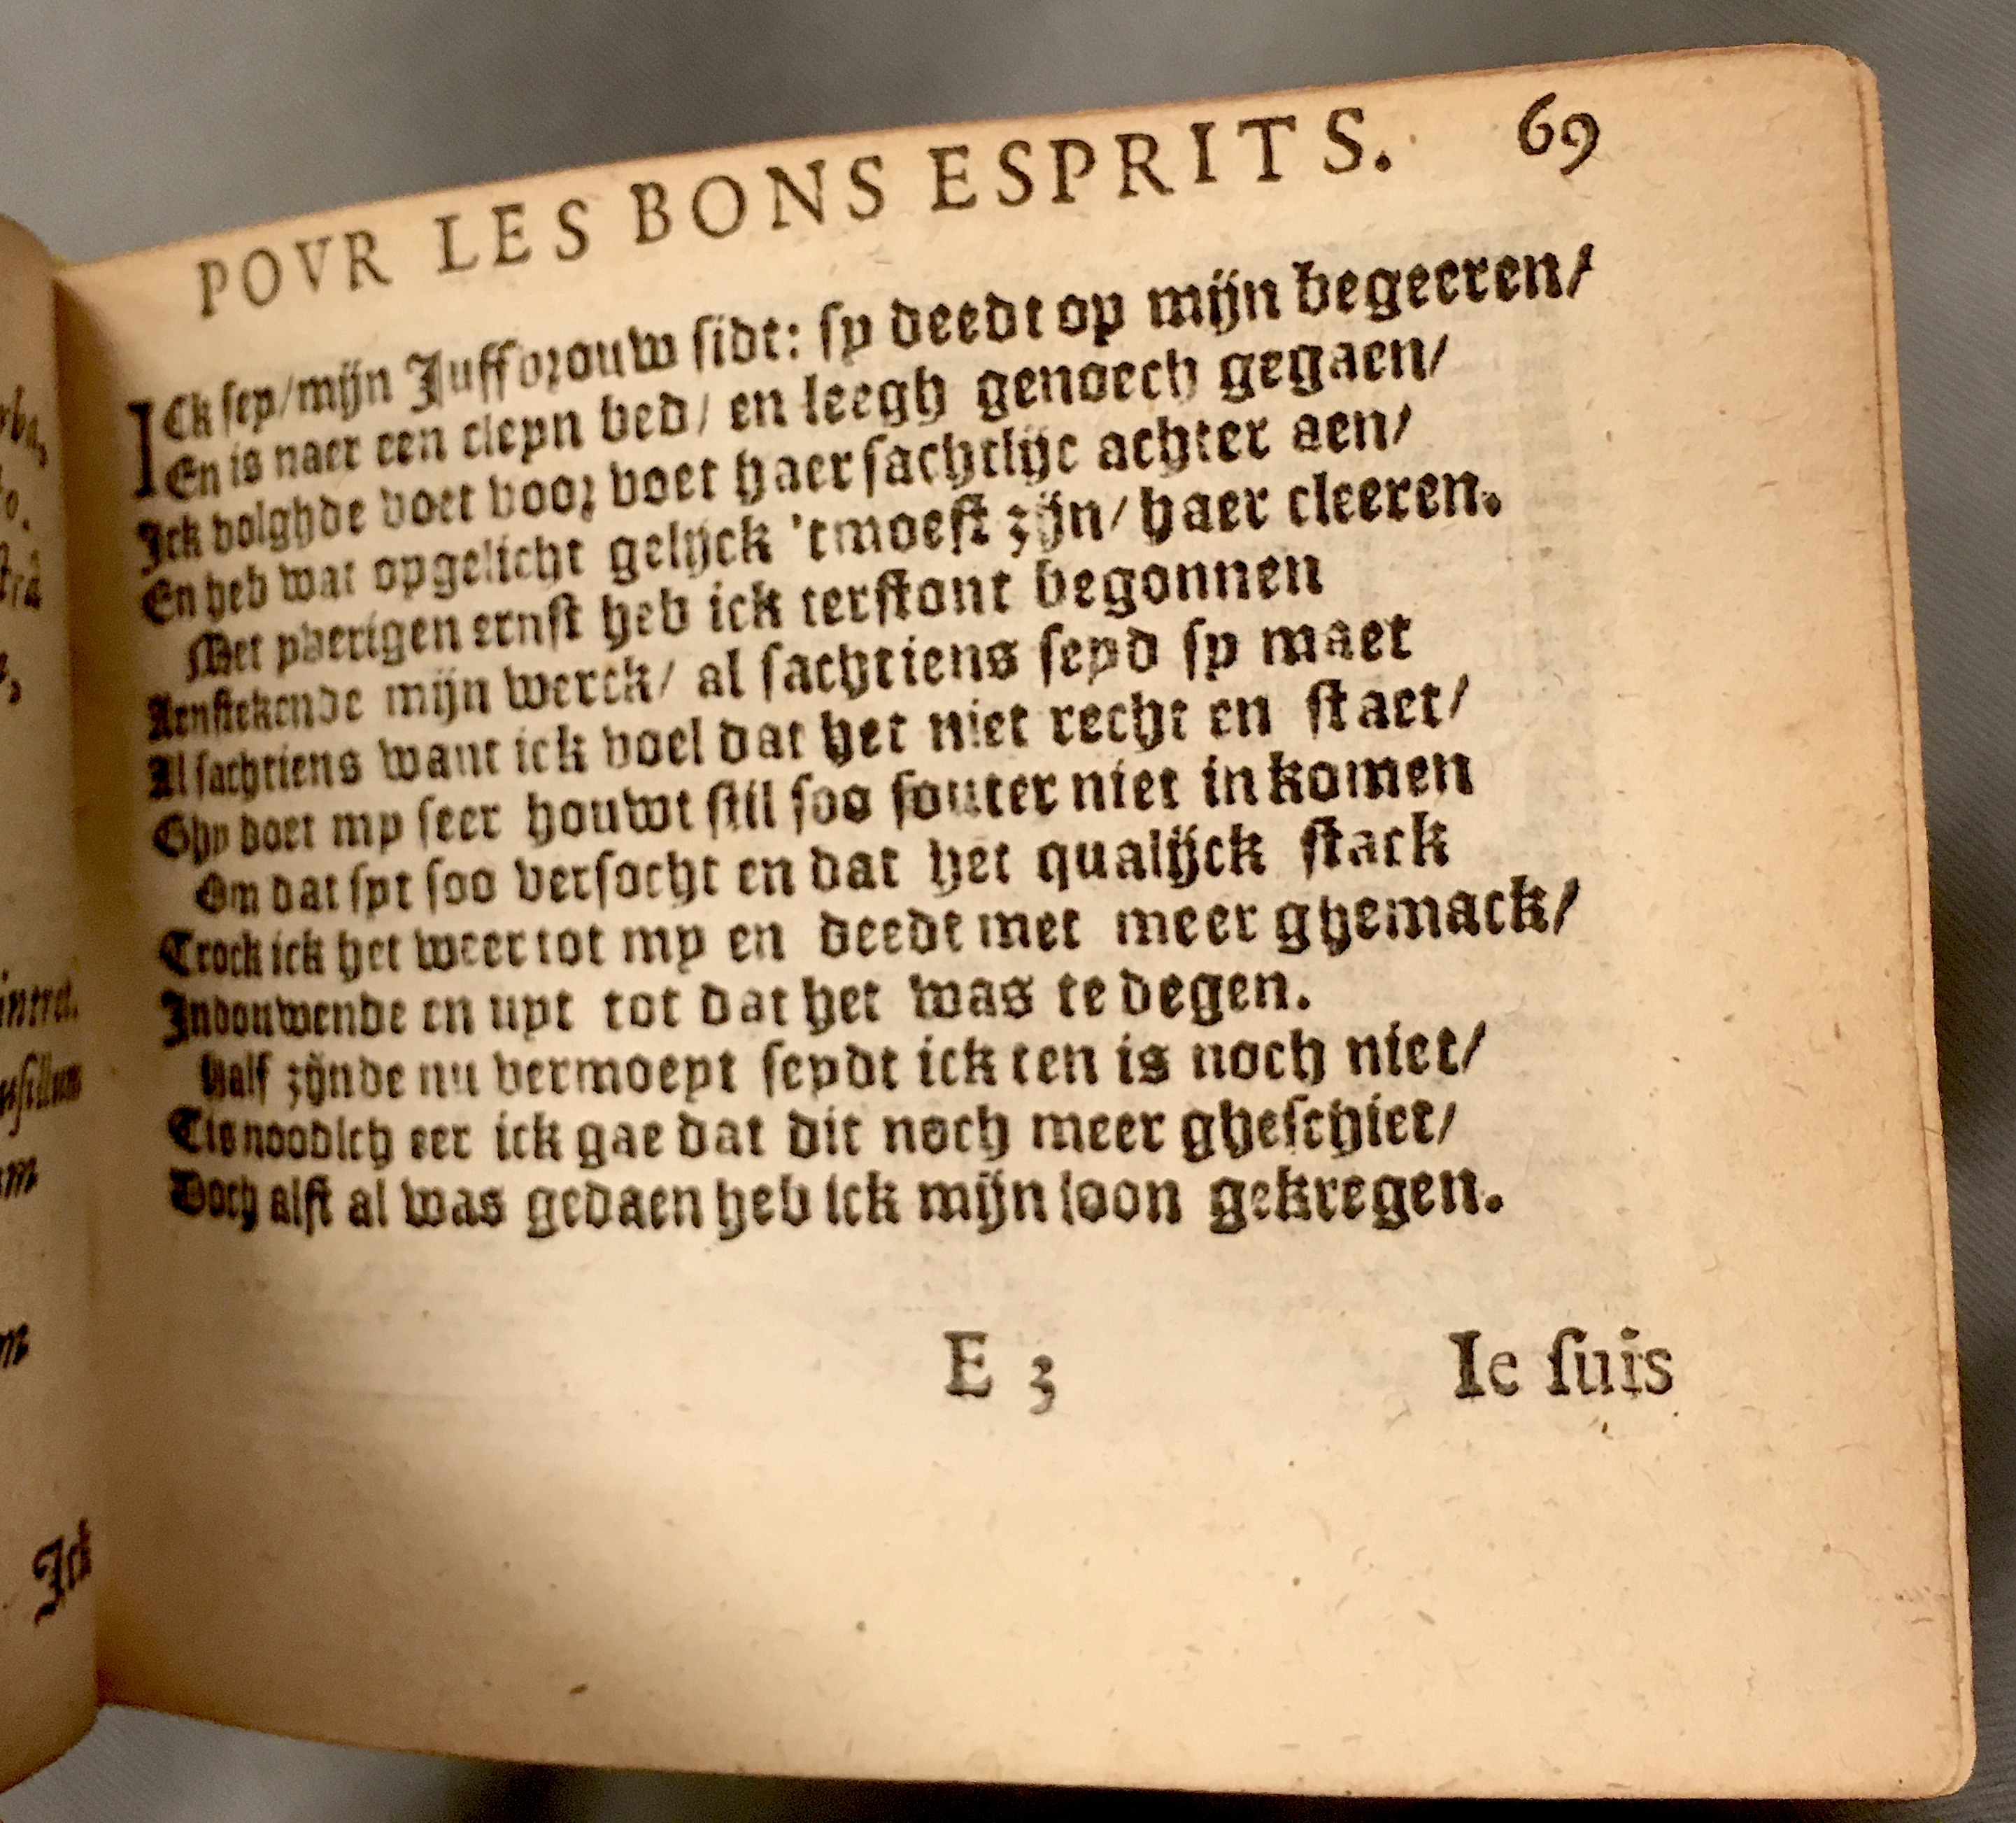 POVR LES BONS ESPRITS. 69
ICk sey/mijn Juffvrouw sidt: sy deedt op mijn begeeren/
En is naer een cleyn bed/ en leegh genoech gegaen/
Ick volghde voet voor voet haer sachtlijc achter aen/
En heb wat opgelicht gelijck 'tmoest zijn/ haer cleeren.
Met yverigen ernst heb ick terstont begonnen
Aenstekende mijn werck/ al sachtiens seyd sy maet
Al sachtiens want ick voel dat het niet recht en staet/
Ghy doet my seer houwt stil soo souter niet in komen
Om dat syt soo versocht en dat het qualijck stack
Trock ick het weer tot my en deedt met meer ghemack/
Indouwende en uyt tot dat het was te degen.
Half zijnde nu vermoeyt seydt ick ten is noch niet/
Tis noodich eer ick gae dat dit noch meer gheschiet/
Doch alst al was gedaen heb ick mijn loon gekregen.
E 3 Ie suis
intret.
Ick